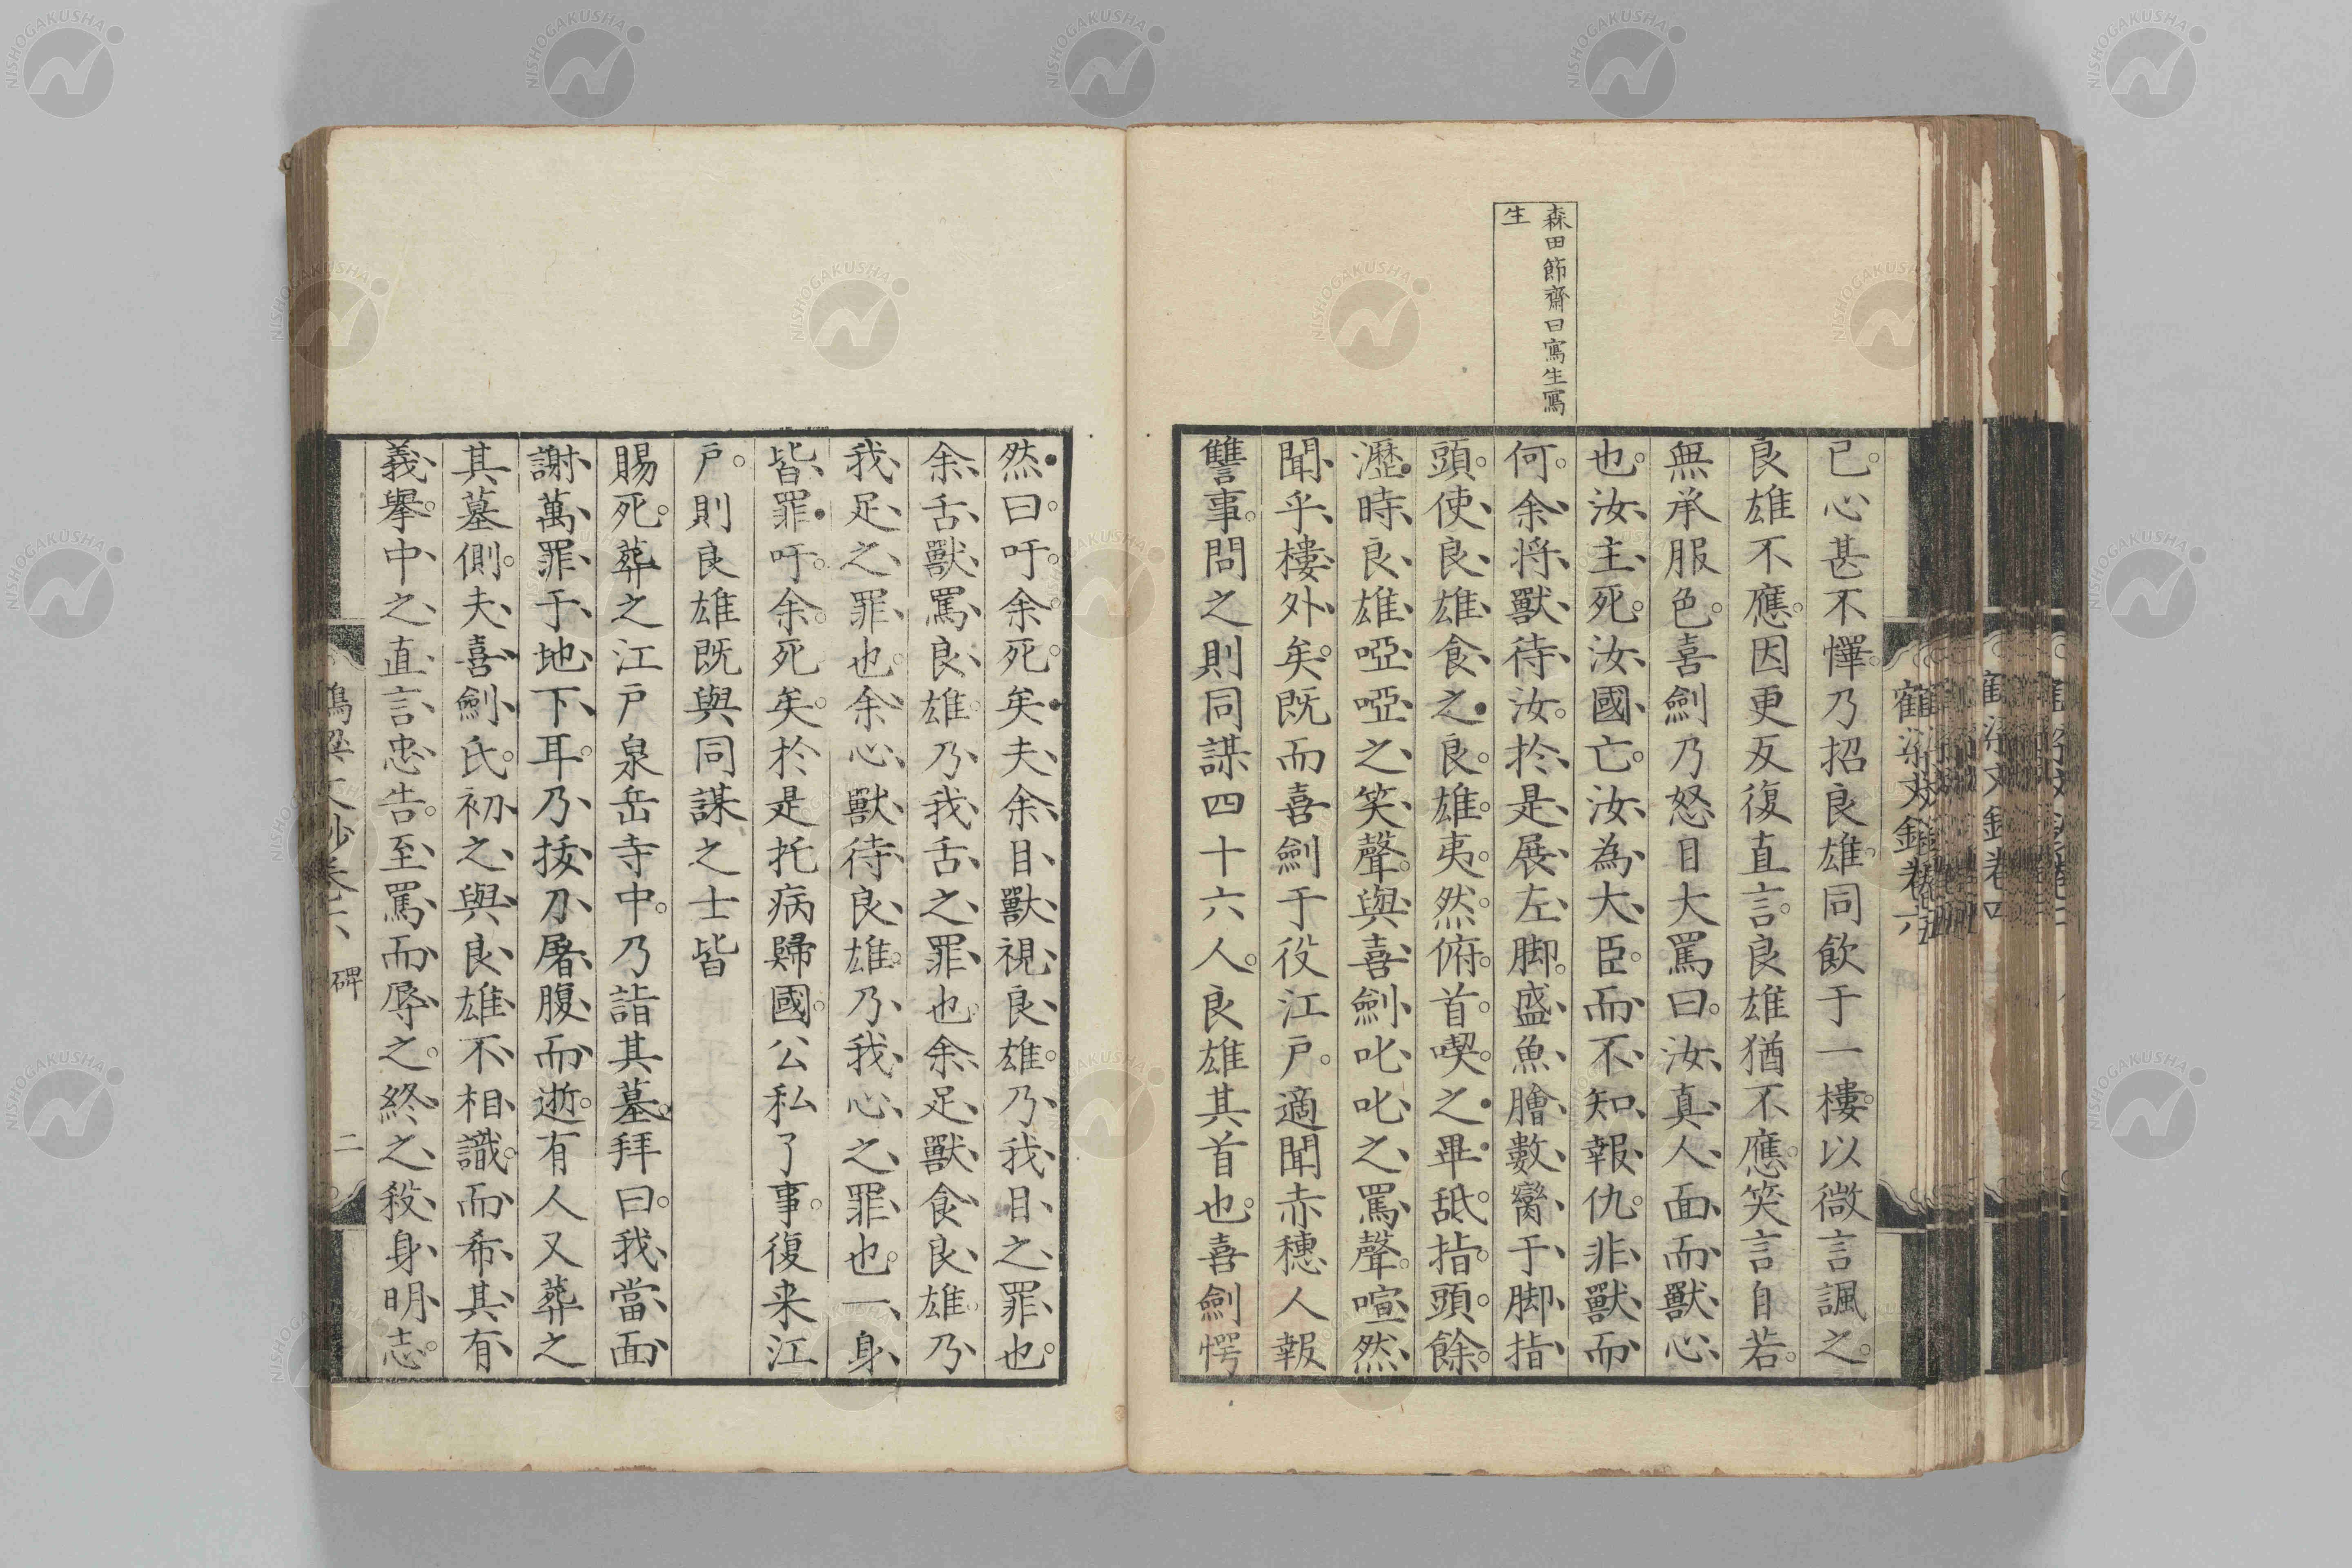 森田節齋曰寫生寫
生
已心甚不懌乃招良雄同飲于一樓以微言諷之
良雄不應因更反復直言良雄猶不應笑言自若
無承服色喜劍乃怒目大罵曰汝真人面而獸心
也汝主死汝國亡汝為大臣而不知報仇非獸而
何余將獸待汝於是展左脚盛魚膾數臠于脚指
頭使良雄食之良雄夷然俯首喫之畢舐指頭餘
瀝時良雄啞啞之笑聲與喜劍叱叱之罵聲喧然
聞乎樓外矣既而喜劍于役江戶適聞赤穗人報
讐事問之則同謀四十六人良雄其首也喜劍愕
然曰吁余死矣夫余目獸視良雄乃我目之罪也
余舌獸罵良雄乃我舌之罪也余足獸食良雄乃
我足之罪也余心獸待良雄乃我心之罪也一身
皆罪吁余死矣於是托病歸國公私了事復来江
戶則良雄既與同謀之士皆
賜死葬之江戶泉岳寺中乃詣其墓拜曰我當面
謝萬罪于地下耳乃拔刀屠腹而逝有人又葬之
其墓側夫喜劍氏初之與良雄不相識而希其有
義擧中之直言忠告至罵而辱之終之殺身明志
碑
二
NISHOGAKUSHA